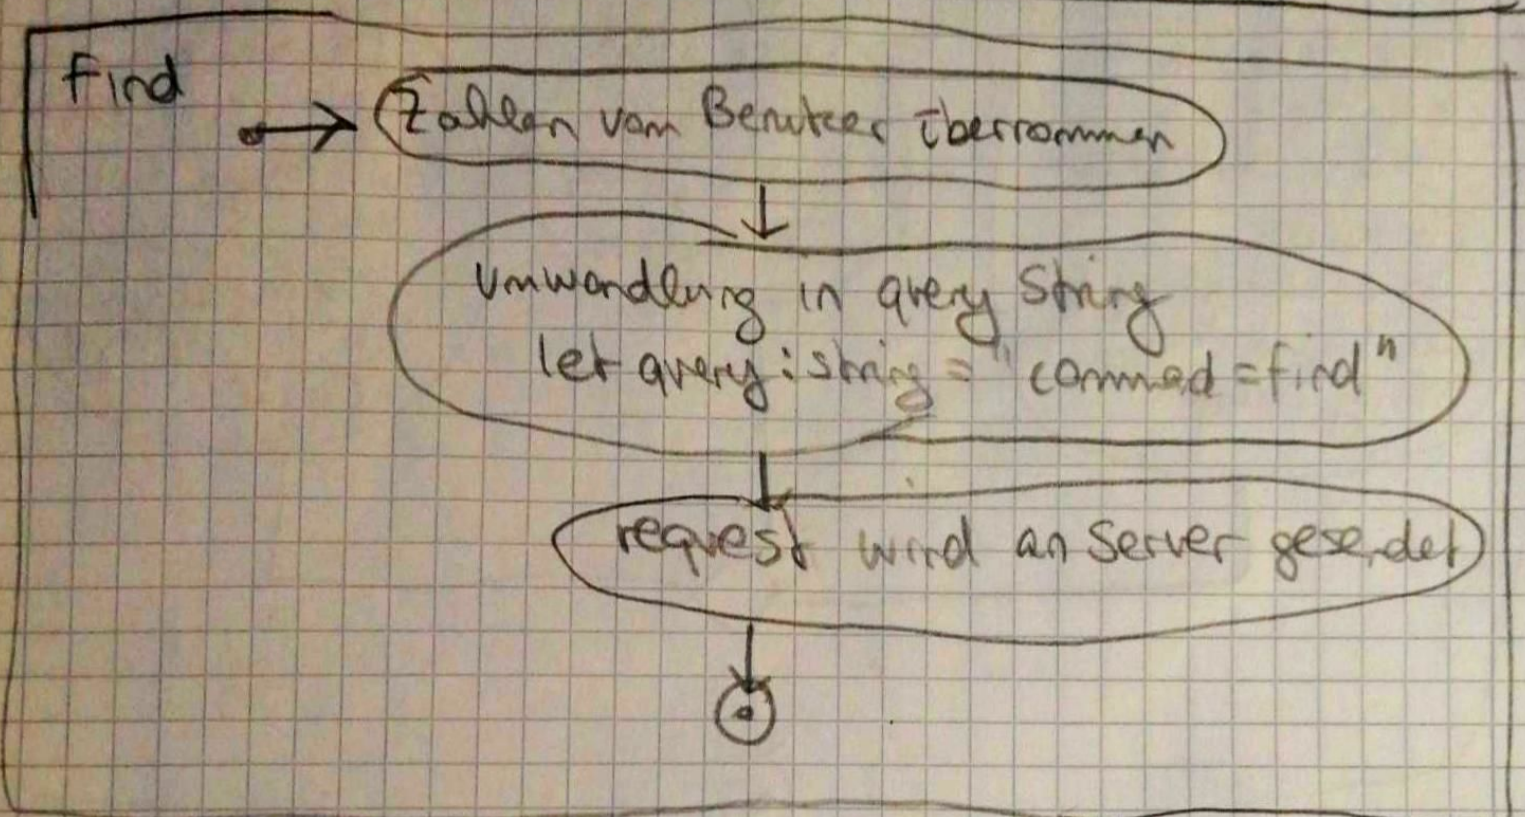 find
Zahlen vom Benutzer übernommen
Umwandlung in query String
let query: string = "commad=find"
request wird an Server gesendet